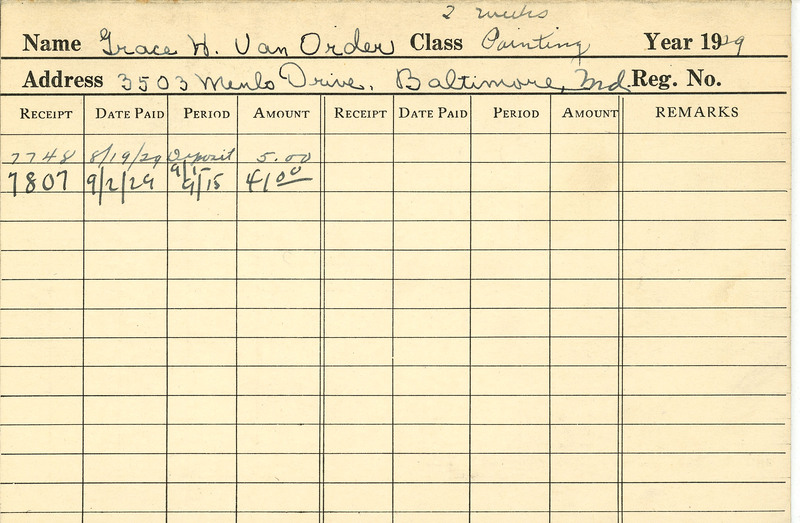 2 weeks
Name Grace H. Van Order Class Painting Year 1929
Address 3503 Menlo Drive, Baltimore, Md. Reg. No.
RECEIPT DATE PAID PERIOD AMOUNT RECEIPT DATE PAID PERIOD AMOUNT REMARKS
7748 8/19/29 Deposit 5.00
7807 9/2/29 9/1-9/15 41.00